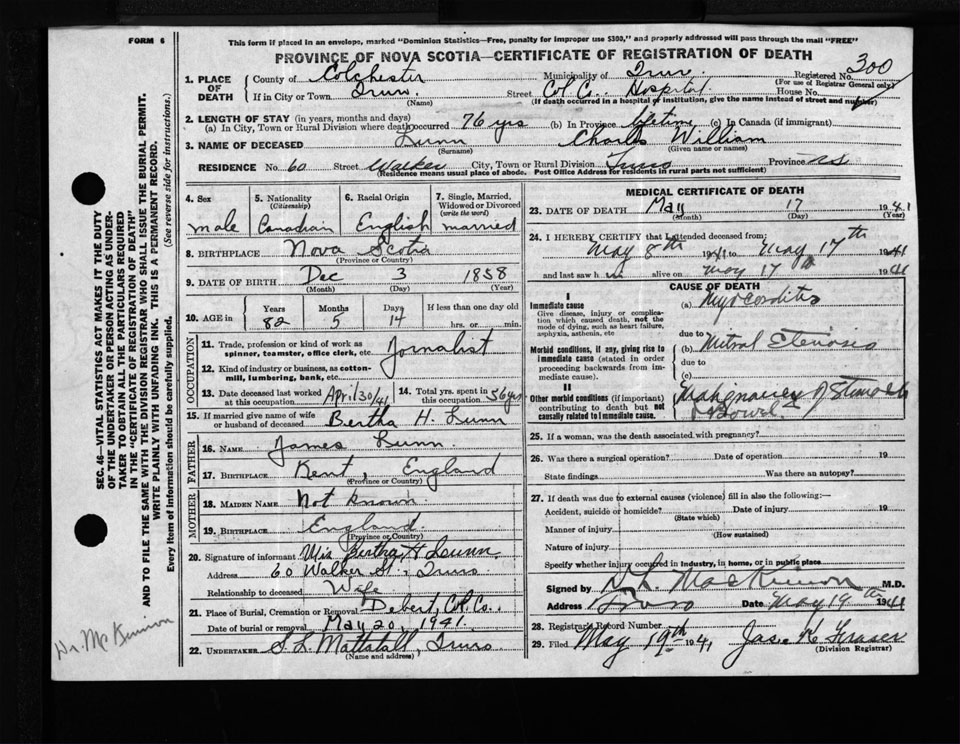 FORM 6
This form if placed in an envelope, marked "Dominion Statistics—Free, penalty for improper use $300," and properly addressed will pass through the mail "FREE"
PROVINCE OF NOVA SCOTIA—CERTIFICATE OF REGISTRATION OF DEATH
1. PLACE OF DEATH
County of Colchester Municipality of Truro. Registered No. 300
(For use of Registrar General only)
If in City or Town Truro Street Col Co. Hospital. House No.
(Name) (If death occurred in a hospital or institution, give the name instead of street and number)
2. LENGTH OF STAY (in years, months and days)
(a) In City, Town or Rural Division where death occurred 76 yrs (b) In Province lifetime (c) In Canada (if immigrant)
3. NAME OF DECEASED Lunn Charles William
(Surname) (Given name or names)
RESIDENCE No. 60 Street Walker City, Town or Rural Division Truro Province NS
(Residence means usual place of abode. Post Office Address for residents in rural parts not sufficient)
4. Sex
male
5. Nationality (Citizenship)
Canadian
6. Racial Origin
English
7. Single, Married, Widowed or Divorced (write the word)
married
8. BIRTHPLACE Nova Scotia
(Province or Country)
9. DATE OF BIRTH Dec 3 1858
(Month) (Day) (Year)
10. AGE in Years Months Days If less than one day old
82 5 14 hrs. or min.
OCCUPATION
11. Trade, profession or kind of work as spinner, teamster, office clerk, etc. Jornalist
12. Kind of industry or business, as cotton-mill, lumbering, bank, etc.
13. Date deceased last worked at this occupation April 30/41
14. Total yrs. spent in this occupation 56 yrs
15. If married give name of wife or husband of deceased Bertha H. Lunn
FATHER
16. NAME James Lunn.
17. BIRTHPLACE Kent, England
(Province or Country)
MOTHER
18. MAIDEN NAME Not known.
19. BIRTHPLACE England.
(Province or Country)
20. Signature of informant Mrs Bertha H Lunn.
Address 60 Walker St., Truro
Relationship to deceased Wife
21. Place of Burial, Cremation or Removal Debert, Col. Co.
Date of burial or removal May 20, 1941.
22. UNDERTAKER S. L. Mattatall, Truro.
(Name and address)
MEDICAL CERTIFICATE OF DEATH
23. DATE OF DEATH May 17 1941
(Month) (Day) (Year)
24. I HEREBY CERTIFY that I attended deceased from:
May 8th 1941 to May 17th 1941
and last saw h im alive on May 17 1941
CAUSE OF DEATH
I
Immediate cause
Give disease, injury or complication which caused death, not the mode of dying, such as heart failure, asphyxia, asthenia, etc
(a) Myocorditis
due to
Morbid conditions, if any, giving rise to immediate cause (stated in order proceeding backwards from immediate cause).
(b) Mitral Stenosis
due to
(c)
II
Other morbid conditions (if important) contributing to death but not causally related to immediate cause.
Malignancy of Stomach
& Bowel
25. If a woman, was the death associated with pregnancy?
26. Was there a surgical operation? Date of operation 19
State findings Was there an autopsy?
27. If death was due to external causes (violence) fill in also the following:—
Accident, suicide or homicide? Date of injury 19
(State which)
Manner of injury
(How sustained)
Nature of injury
Specify whether injury occurred in industry, in home, or in public place
Signed by D L MacKinnon M.D.
Address Truro Date May 19th 1941
28. Registrar's Record Number
29. Filed May 19th 1941
(Division Registrar)
SEC. 46—VITAL STATISTICS ACT MAKES IT THE DUTY OF THE UNDERTAKER OR PERSON ACTING AS UNDERTAKER TO OBTAIN ALL THE PARTICULARS REQUIRED IN THE "CERTIFICATE OF REGISTRATION OF DEATH" AND TO FILE THE SAME WITH THE DIVISION REGISTRAR WHO SHALL ISSUE THE BURIAL PERMIT.
WRITE PLAINLY WITH UNFADING INK. THIS IS A PERMANENT RECORD.
Every item of information should be carefully supplied. (See reverse side for instructions.)
Dr. McKinnon